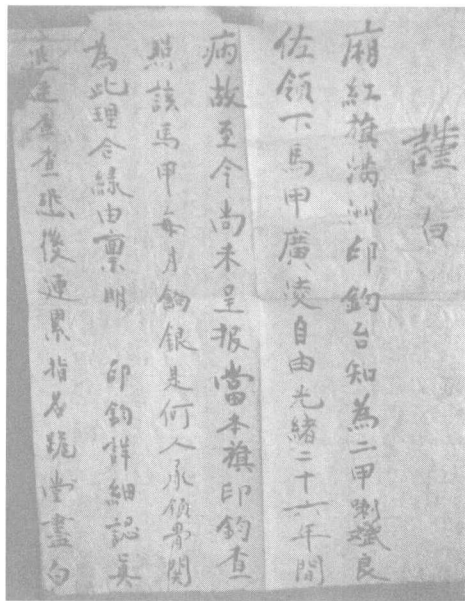 謹白
廂紅旗滿洲印鈞台知為二甲喇斌良
佐領下馬甲廣凌自由光緒二十六年間
病故至今尚未呈报當本旗印鈞查
照該馬甲每月餉銀是何人承領膏関
為此理合緣由禀明 印鈞詳細認真
查恐後連累指名跪 盡白